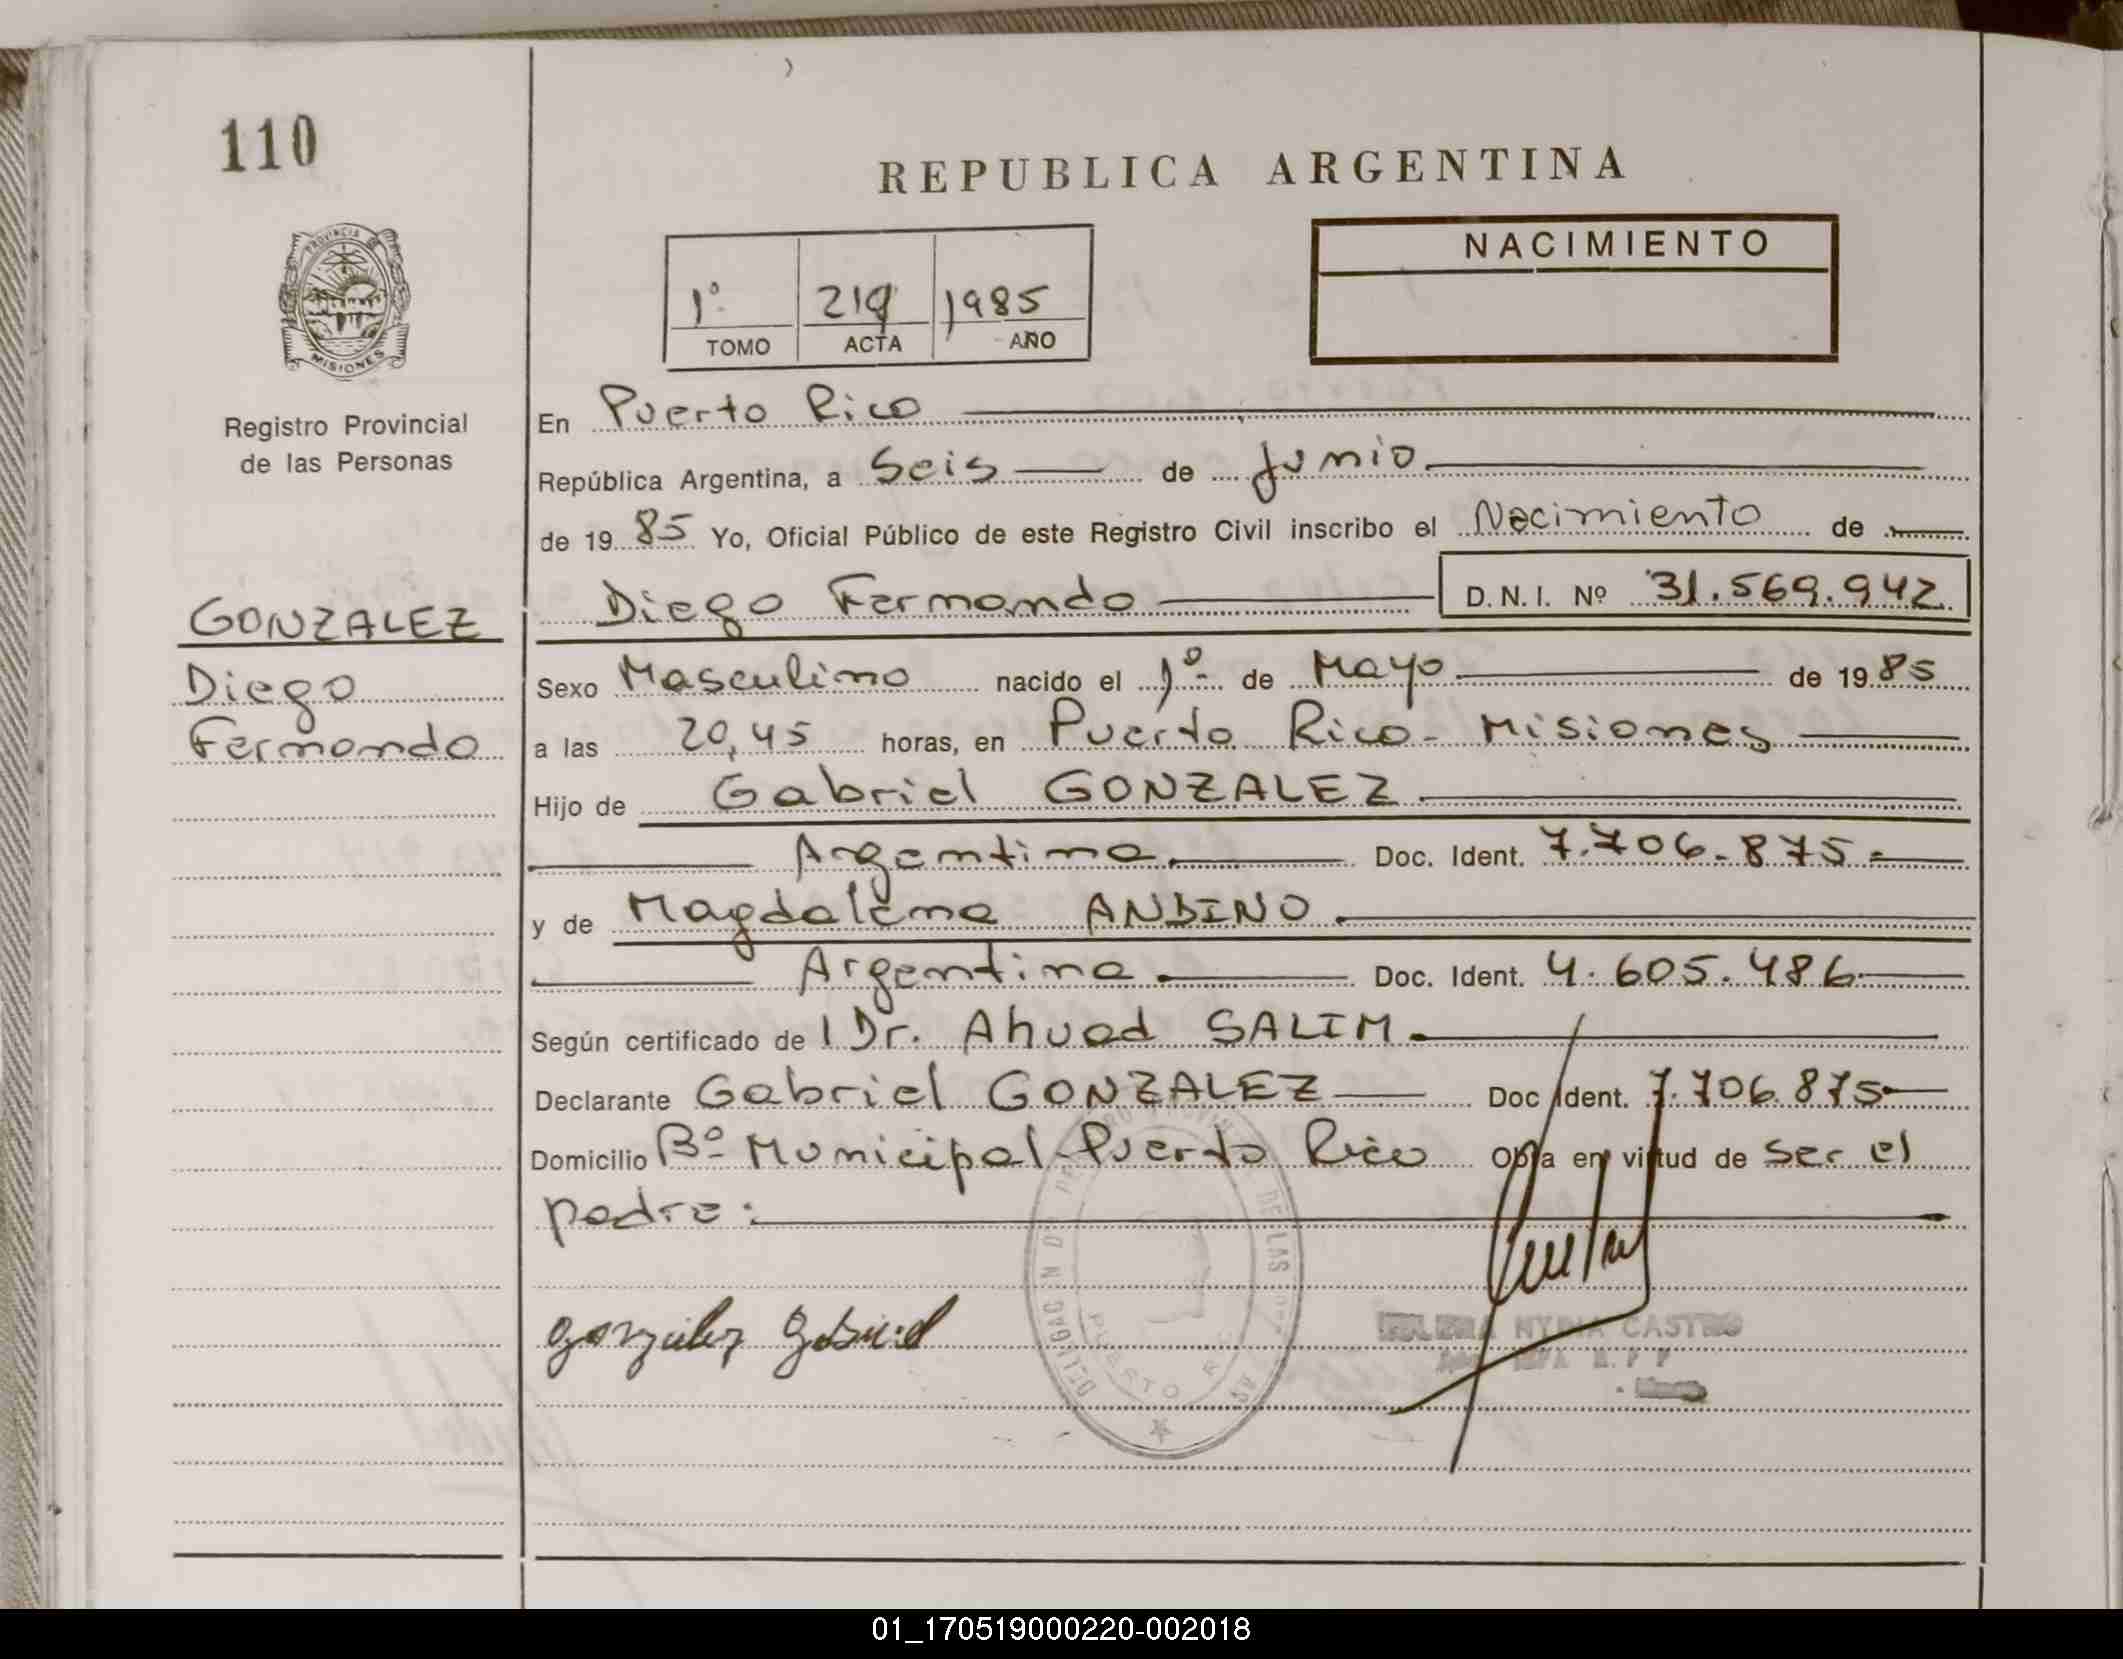 110
REPUBLICA ARGENTINA
NACIMIENTO
1º 219 1985
TOMO ACTA AÑO
PROVINCIA DE
MISIONES
Registro Provincial
de las Personas
En Puerto Rico
República Argentina, a Seis de Junio
de 19 85 Yo, Oficial Público de este Registro Civil inscribo el Nacimiento de
GONZALEZ
Diego
Fernando
Diego Fernando D.N.I. Nº 31.569.942
Sexo Masculino nacido el 1º de Mayo de 19 85
a las 20,45 horas, en Puerto Rico - Misiones
Hijo de Gabriel GONZALEZ
Argentino. Doc. Ident. 7.706.875.-
y de Magdalena ANDINO.
Argentina. Doc. Ident. 4.605.486
Según certificado de l Dr. Ahuad SALIM.
Declarante Gabriel GONZALEZ Doc Ident. 7.706.875
Domicilio Bº Municipal Puerto Rico Obra en virtud de ser el
padre.
gonzalez gabriel
NYDIA CASTRO
DE LAS
PUERTO
01_170519000220-002018